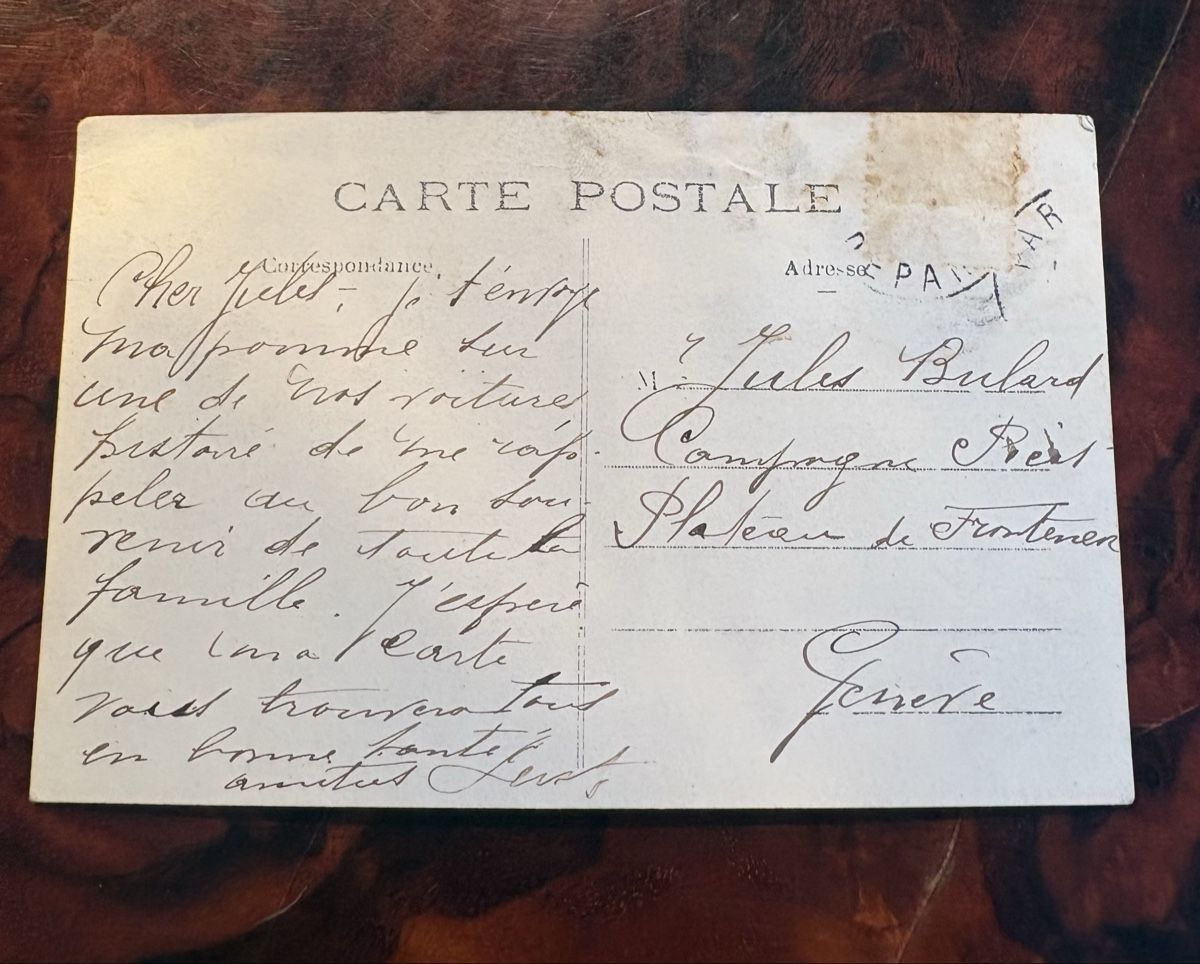 CARTE POSTALE
Correspondance
Cher Jules, je t'envoye
ma pomme sur
une de nos voitures
histoire de me rap-
peler au bon sou-
venir de toute la
famille. J'espère
que ma carte
vous trouvera tous
en bonne santé
amitiés
Adresse
PAR
M Jules Bulard
Campagne
Plateau de Frontenex
Genève